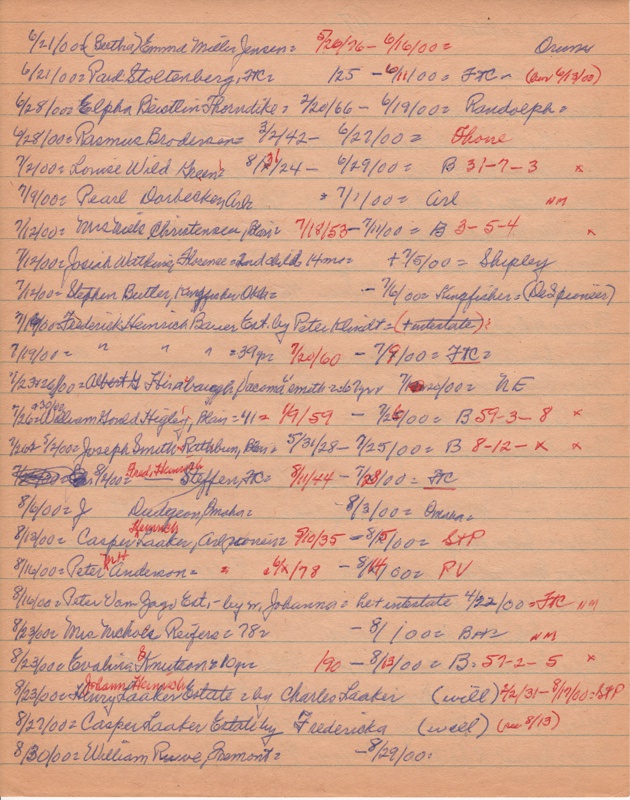 6/21/00=(Bertha) Emma Miller Jensen= 5/26/76- 6/16/00= Orum
6/21/00=Paul Stoltenberg, FTC= 125 - 6/11/00= FTC - (Bur 6/13/00)
6/28/00= Elpha Beistlin Thorndike= 2/20/66 - 6/19/00= Randolph=
6/28/00= Rasmus Brodersen= 3/2/42- 6/27/00= Phone
7/2/00= Louise Wild Green= 8/31/24 - 6/29/00= B 31-7-3 x
7/9/00= Pearl Dorbecker, Arl= = 7/1/00= Arl NM
7/12/00= Mrs Niels Christensen, Blair= 7/18/53- 7/11/00= B 3-5-4 x
7/12/00=Josiah Watkins, Florence=2nd child 14mo= + 7/5/00= Shipley
7/12/00= Stephen Butler, Kingfisher Okla= - 7/6/00= Kingfisher=(DeSpioneer)
7/19/00=Frederick Heinrich Bauer Est. by Peter Klindt=(+intestate)
7/19/00= " " " =39yr 7/20/60 - 7/9/00= FTC=
7/23+26/00=Albert G Hirsbaugh, Tacoma smith = 67yr 7/20/00= NE
7/26+30/00=William Gould Higley, Blair=41= 1/9/59 - 7/25/00= B 59-3-8 x
7/26+ 8/2/00= Joseph Smith Rathbun, Blair= 5/31/28-7/25/00= B 8-12-x x
8/2/00= Fred Heinrich Steffen, FTC= 8/11/44 - 7/28/00= FTC
8/6/00= J Dudgeon, Omaha= -8/3/00= Omaha=
8/13/00= Casper Heinrich Laaker, Arl, pioneer= 9/10/35 -8/5/00= StP
8/16/00= Peter Anderson= 78 - 8/14/00= RV
8/16/00= Peter Von Jago Est,- by w. Johanna= he + intestate 4/22/00=FTC NM
8/23/00= Mrs Nichols Reifers=78= -8/ /00= NM
8/23/00= Evalina Knutson 10yr 1/90 -8/13/00= B=57-2-5 x
8/23/00= Johann Heinrich Henry Laaker Estate= by Charles Laaker (will) 2/2/31-8/17/00=StP
8/27/00= Casper Laaker Estate by Fredericka (will) (see 8/13)
8/30/00= William Ruwe, Fremont= -8/29/00=